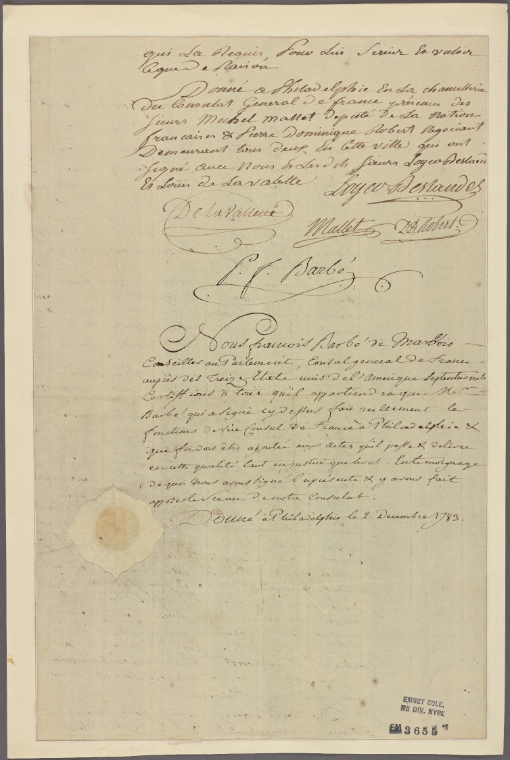 qui La Requis, Pour Lui Servir Et valoir
Ceque De Raison
Donné a Philadelphie En La chancellerie
Du Consulat General de france présence des
Sieurs Michel mallet deputé de La Nation
francaise & Pierre Dominique Robert Negociant
Demeurant tous deux En Cette ville qui ont
Signé avec Nous & Lesd. Sieurs Loyeo Deslandes
Et Louis de La valette
Loyeo Deslandes
Mallet P D Robert
P. f. Barbé
Nous françois Barbé de Marbois
Conseiller au Parlement, Consul general de France
auprès des Treize Etats unis de l'amerique Septentrionale
Certiffions à tous qu'il appartiendra que
Barbé qui a signé cy dessus fait reellement les
fonctions de Vice Consul de France à Philadelphie &
que foi doit être ajoutée aux actes qu'il passe & délivre
en cette qualité tant en justice que hors. En temoignage
de quoi nous avons signé la présente & y avons fait
apposer le sceau de notre Consulat.
Donné à Philadelphie le 2. Decembre 1783.
EMMET COLL.
MS DIV. NYPL
EM 3655